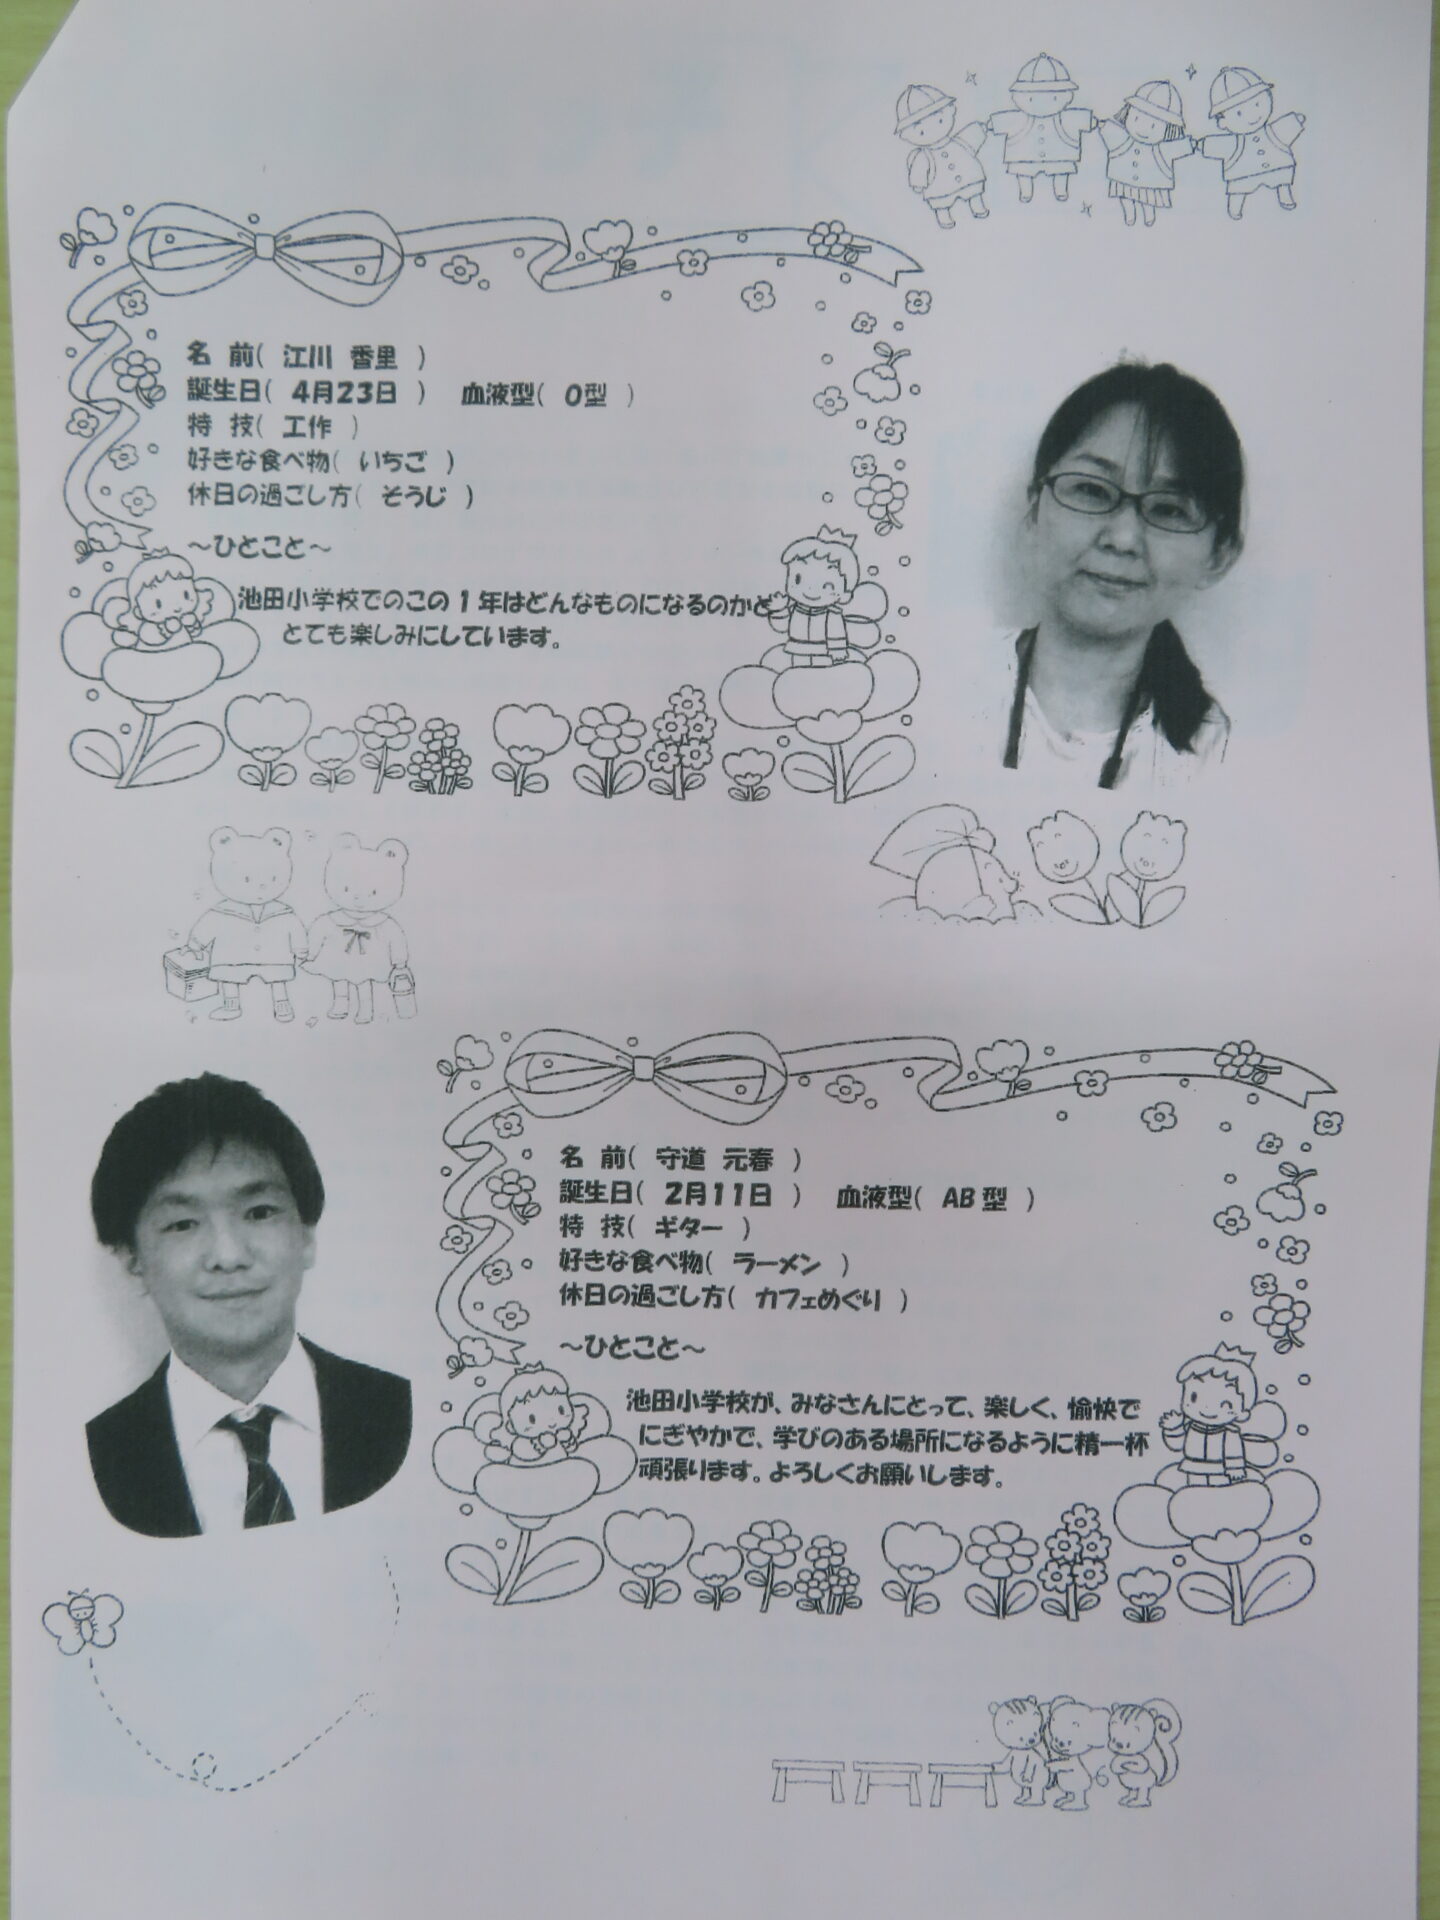 名 前( 江川 香里 )
誕生日( 4月23日 ) 血液型( O型 )
特 技( 工作 )
好きな食べ物( いちご )
休日の過ごし方( そうじ )
～ひとこと～
池田小学校でのこの1年はどんなものになるのかと
とても楽しみにしています。
名 前( 守道 元春 )
誕生日( 2月11日 ) 血液型( AB型 )
特 技( ギター )
好きな食べ物( ラーメン )
休日の過ごし方( カフェめぐり )
～ひとこと～
池田小学校が、みなさんにとって、楽しく、愉快で
にぎやかで、学びのある場所になるように精一杯
頑張ります。よろしくお願いします。